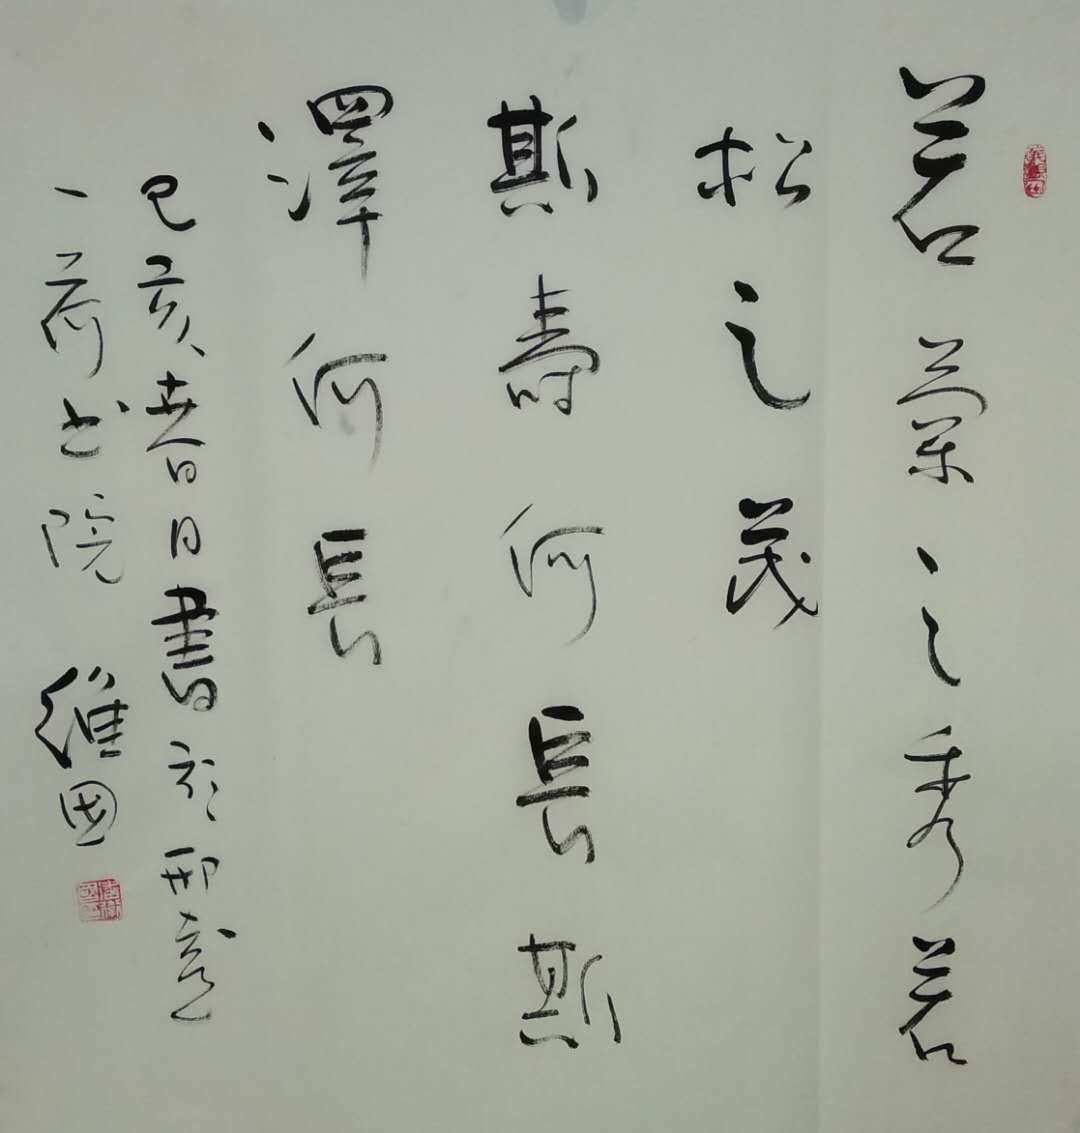 若蘭之秀若
松之茂
斯壽何長斯
澤何長
己亥春日書於邢臺
一荷书院 維国